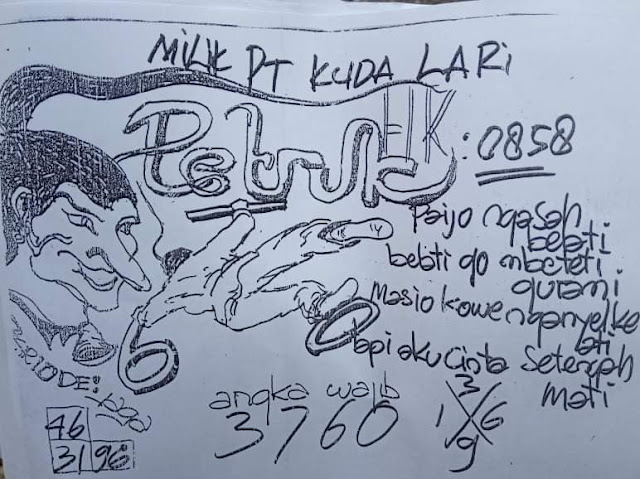 MILIK PT KUDA LARI
Petruk
HK: 0858
Paijo ngasah
belati
belati go mbeteti
gurami
Masio kowe nganyelke
ati
Tapi aku cinta setengah
mati
6
0
PERIODE:
46
31 96
angka wajib
3760
3
1 X 6
9